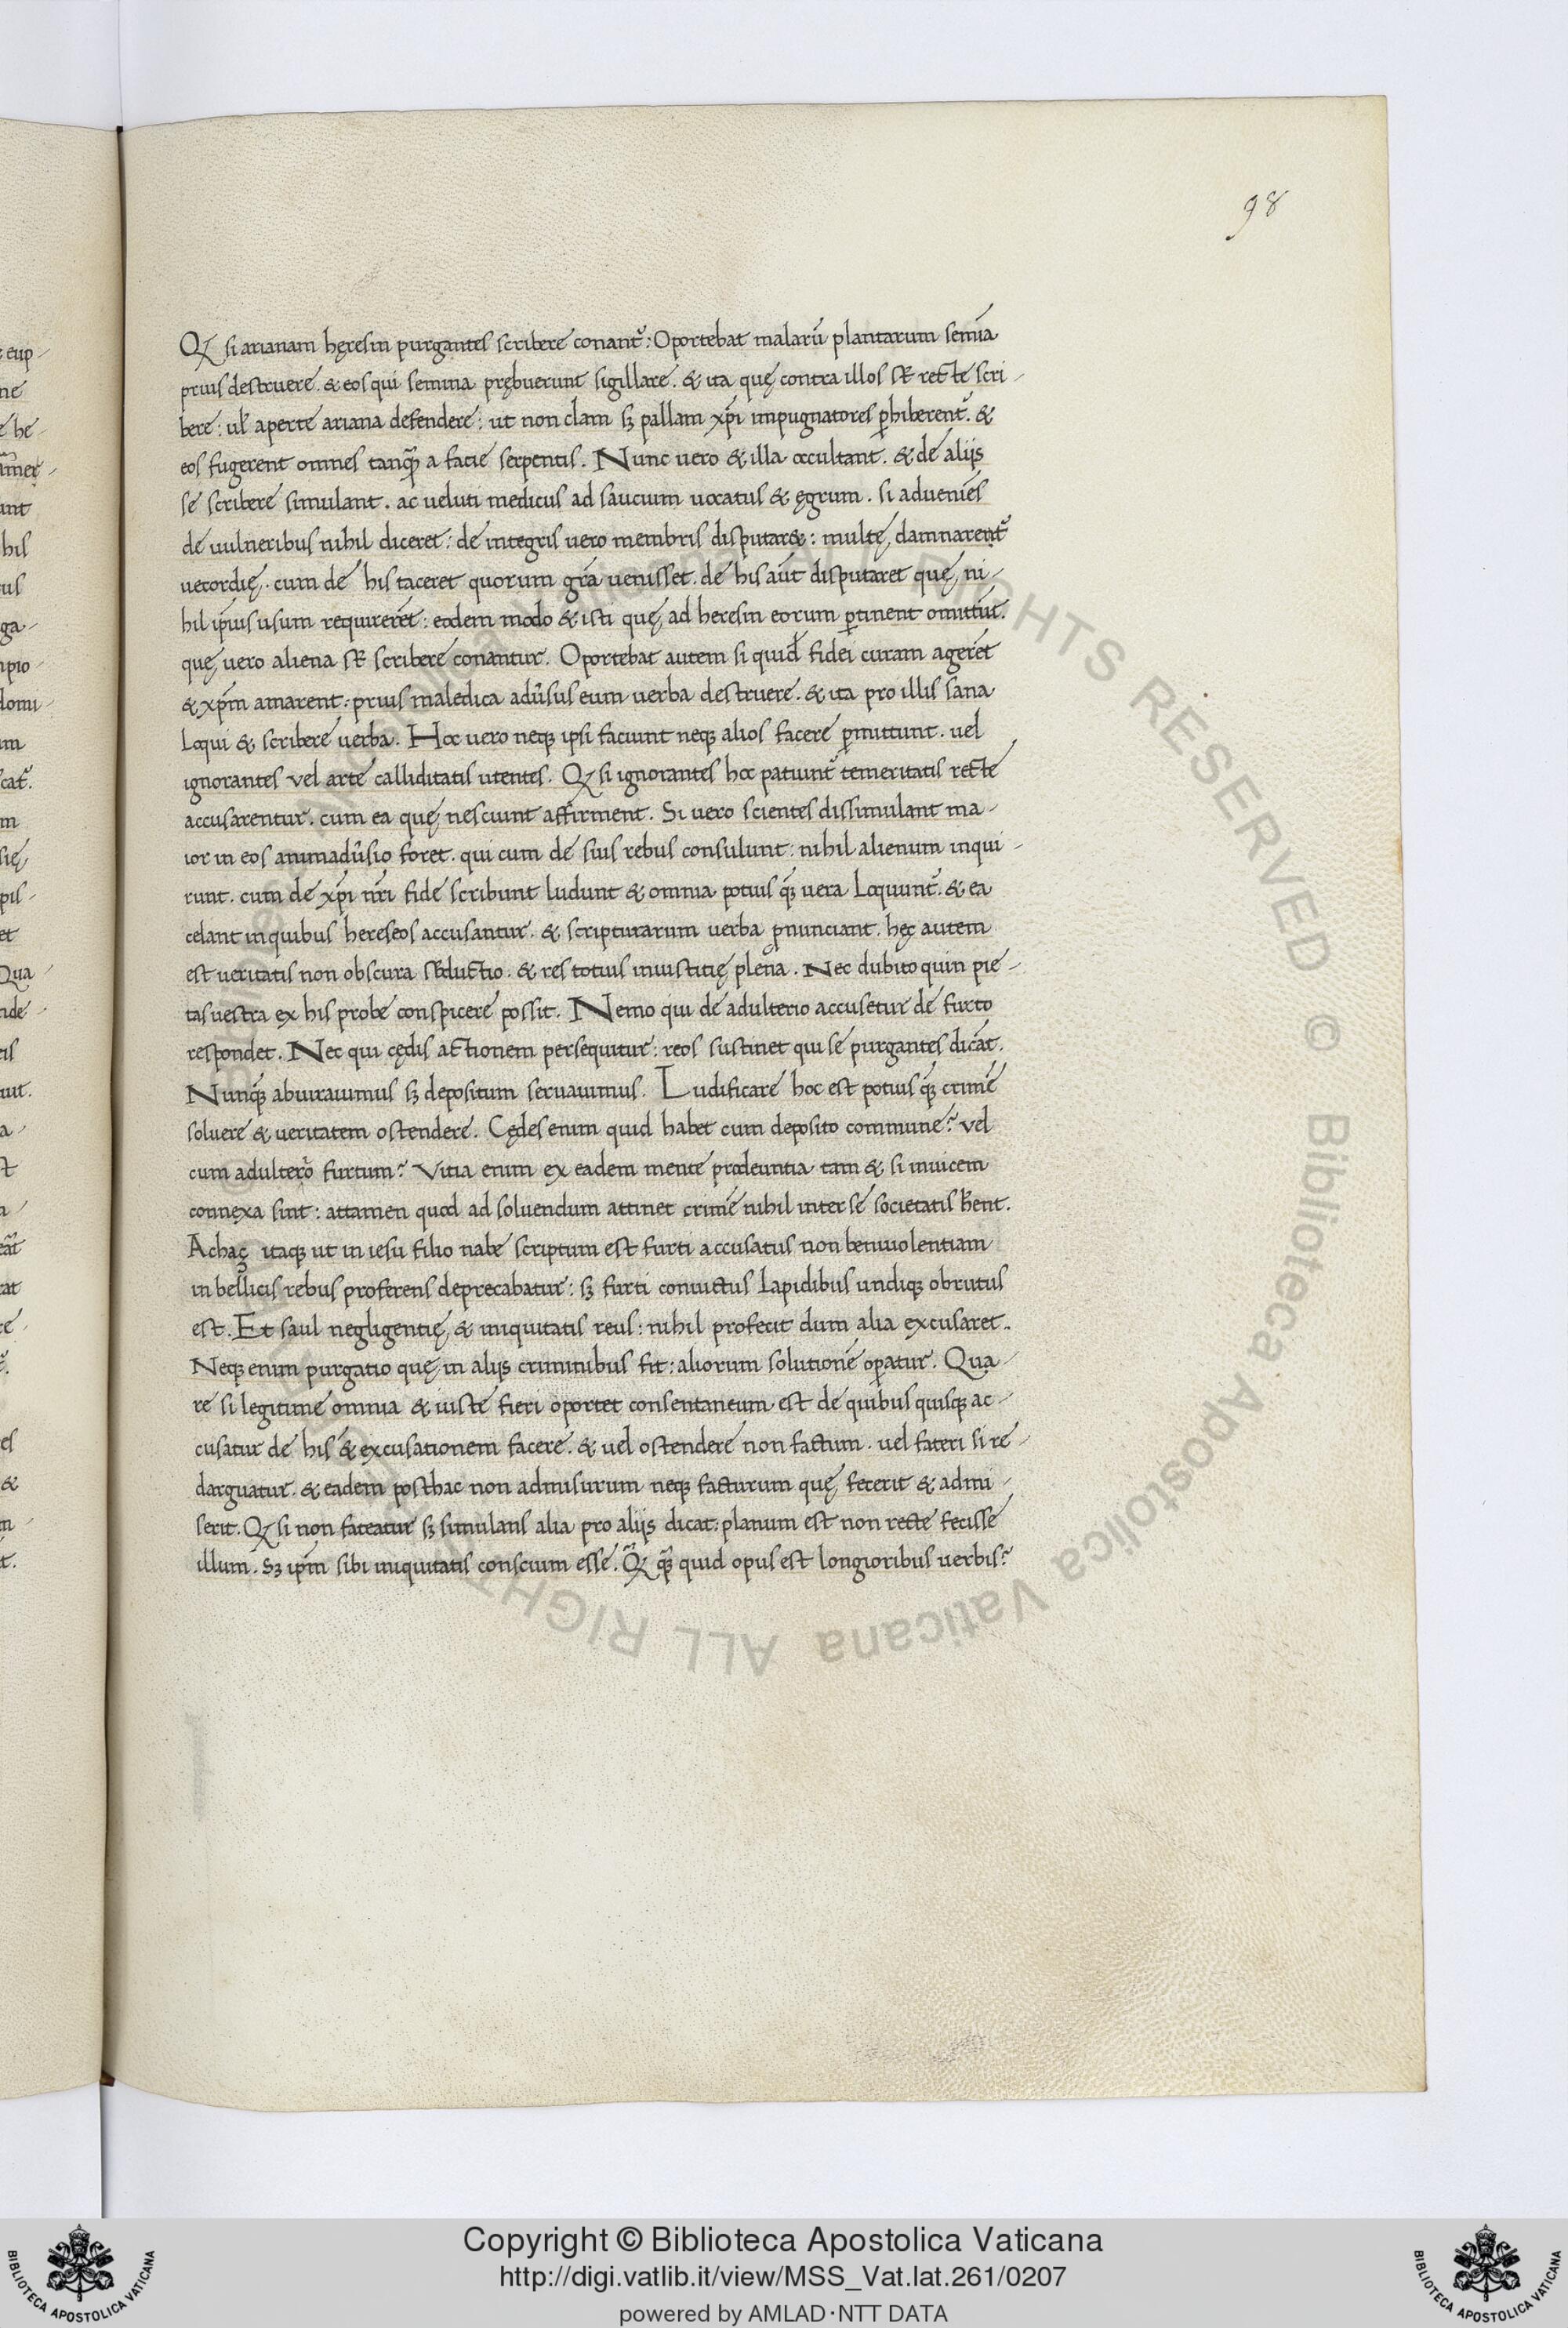 98
Qꝫ si arianam hęresin purgantes scribere conant᷑: Oportebat malarū plantarum semīa
prius destruere. & eos qui semina prębuerunt sigillare. & ita quę contra illos st̄ recte scri-
bere: ul̄ aperte ariana defendere: ut non clam sꝫ pallam xp̄i impugnatores ꝑhiberent᷑. &
eos fugerent omnes tanq̄ꝫ a facie serpentis. Nunc uero & illa occultant. & de alijs
se scribere simulant. ac ueluti medicus ad saucium uocatus & ęgrum. si adueniēs
de uulneribus nihil diceret: de integris uero membris disputar&: multę damnarent᷑
uecordię. cum de his taceret quorum gr̄a uenisset. de his aūt disputaret quę ni-
hil ip̄ius usum requirerēt: eodem modo & isti quę ad heresin eorum ꝑtinent omittūt.
quę uero aliena st̄ scribere conantur. Oportebat autem si quid̄ fidei curam agerēt
& xp̄m amarent: prius maledica adūsus eum uerba destruere. & ita pro illis sana
Loqui & scribere uerba. Hoc uero neqꝫ ipsi faciunt neqꝫ alios facere ꝑmittunt. uel
ignorantes vel arte calliditatis utentes. Qꝫ si ignorantes hoc patiunt᷑ temeritatis recte
accusarentur. cum ea quę nesciunt affirment. Si uero scientes dissimulant ma-
ior in eos animadūsio foret. qui cum de suis rebus consulunt: nihil alienum inqui-
runt. cum de xp̄i nr̄i fide scribunt ludunt & omnia potius q̄ꝫ uera Loquunt᷑. & ea
celant in quibus hereseos accusantur. & scripturarum uerba ꝓnunciant. hęc autem
est ueritatis non obscura seductio. & res totius iniustitię plena. Nec dubito quin pie-
tas uestra ex his probe conspicere possit. Nemo qui de adulterio accusetur de furto
respondet. Nec qui cędis actionem persequitur: reos sustinet qui se purgantes dicāt.
Nunq̄ꝫ abiurauimus sꝫ depositum seruauimus. Ludificare hoc est potius q̄ꝫ crimē
soluere & ueritatem ostendere. Cędes enim quid habet cum deposito commune? vel
cum adultero furtum? Vitia enim ex eadem mente prodeuntia tam & si inuicem
connexa sint: attamen quod ad soluendum attinet crimē nihil inter se societatis hn̄t.
Achaç itaqꝫ ut in iesu filio nabe scriptum est furti accusatus non beniuolentiam
in bellicis rebus proferens deprecabatur: sꝫ furti conuictus Lapidibus undiqꝫ obrutus
est. Et saul negligentię & iniquitatis reus: nihil profecit dum alia excusaret.
Neqꝫ enim purgatio quę in alijs criminibus fit: aliorum solutionē oꝑatur. Qua-
re si legitime omnia & iuste fieri oportet consentaneum est de quibus quisqꝫ ac-
cusatur de his & excusationem facere. & uel ostendere non factum. uel fateri si re-
darguatur. & eadem posthac non admisurum neqꝫ facturum quę fecerit & admi-
serit. Qꝫ si non fateatur sꝫ simulans alia pro alijs dicat: planum est non recte fecisse
illum. Sꝫ ip̄m sibi iniquitatis conscium esse. Q̄ꝫ q̄ꝫ quid opus est longioribus uerbis?
Copyright © Biblioteca Apostolica Vaticana
http://digi.vatlib.it/view/MSS_Vat.lat.261/0207
powered by AMLAD·NTT DATA